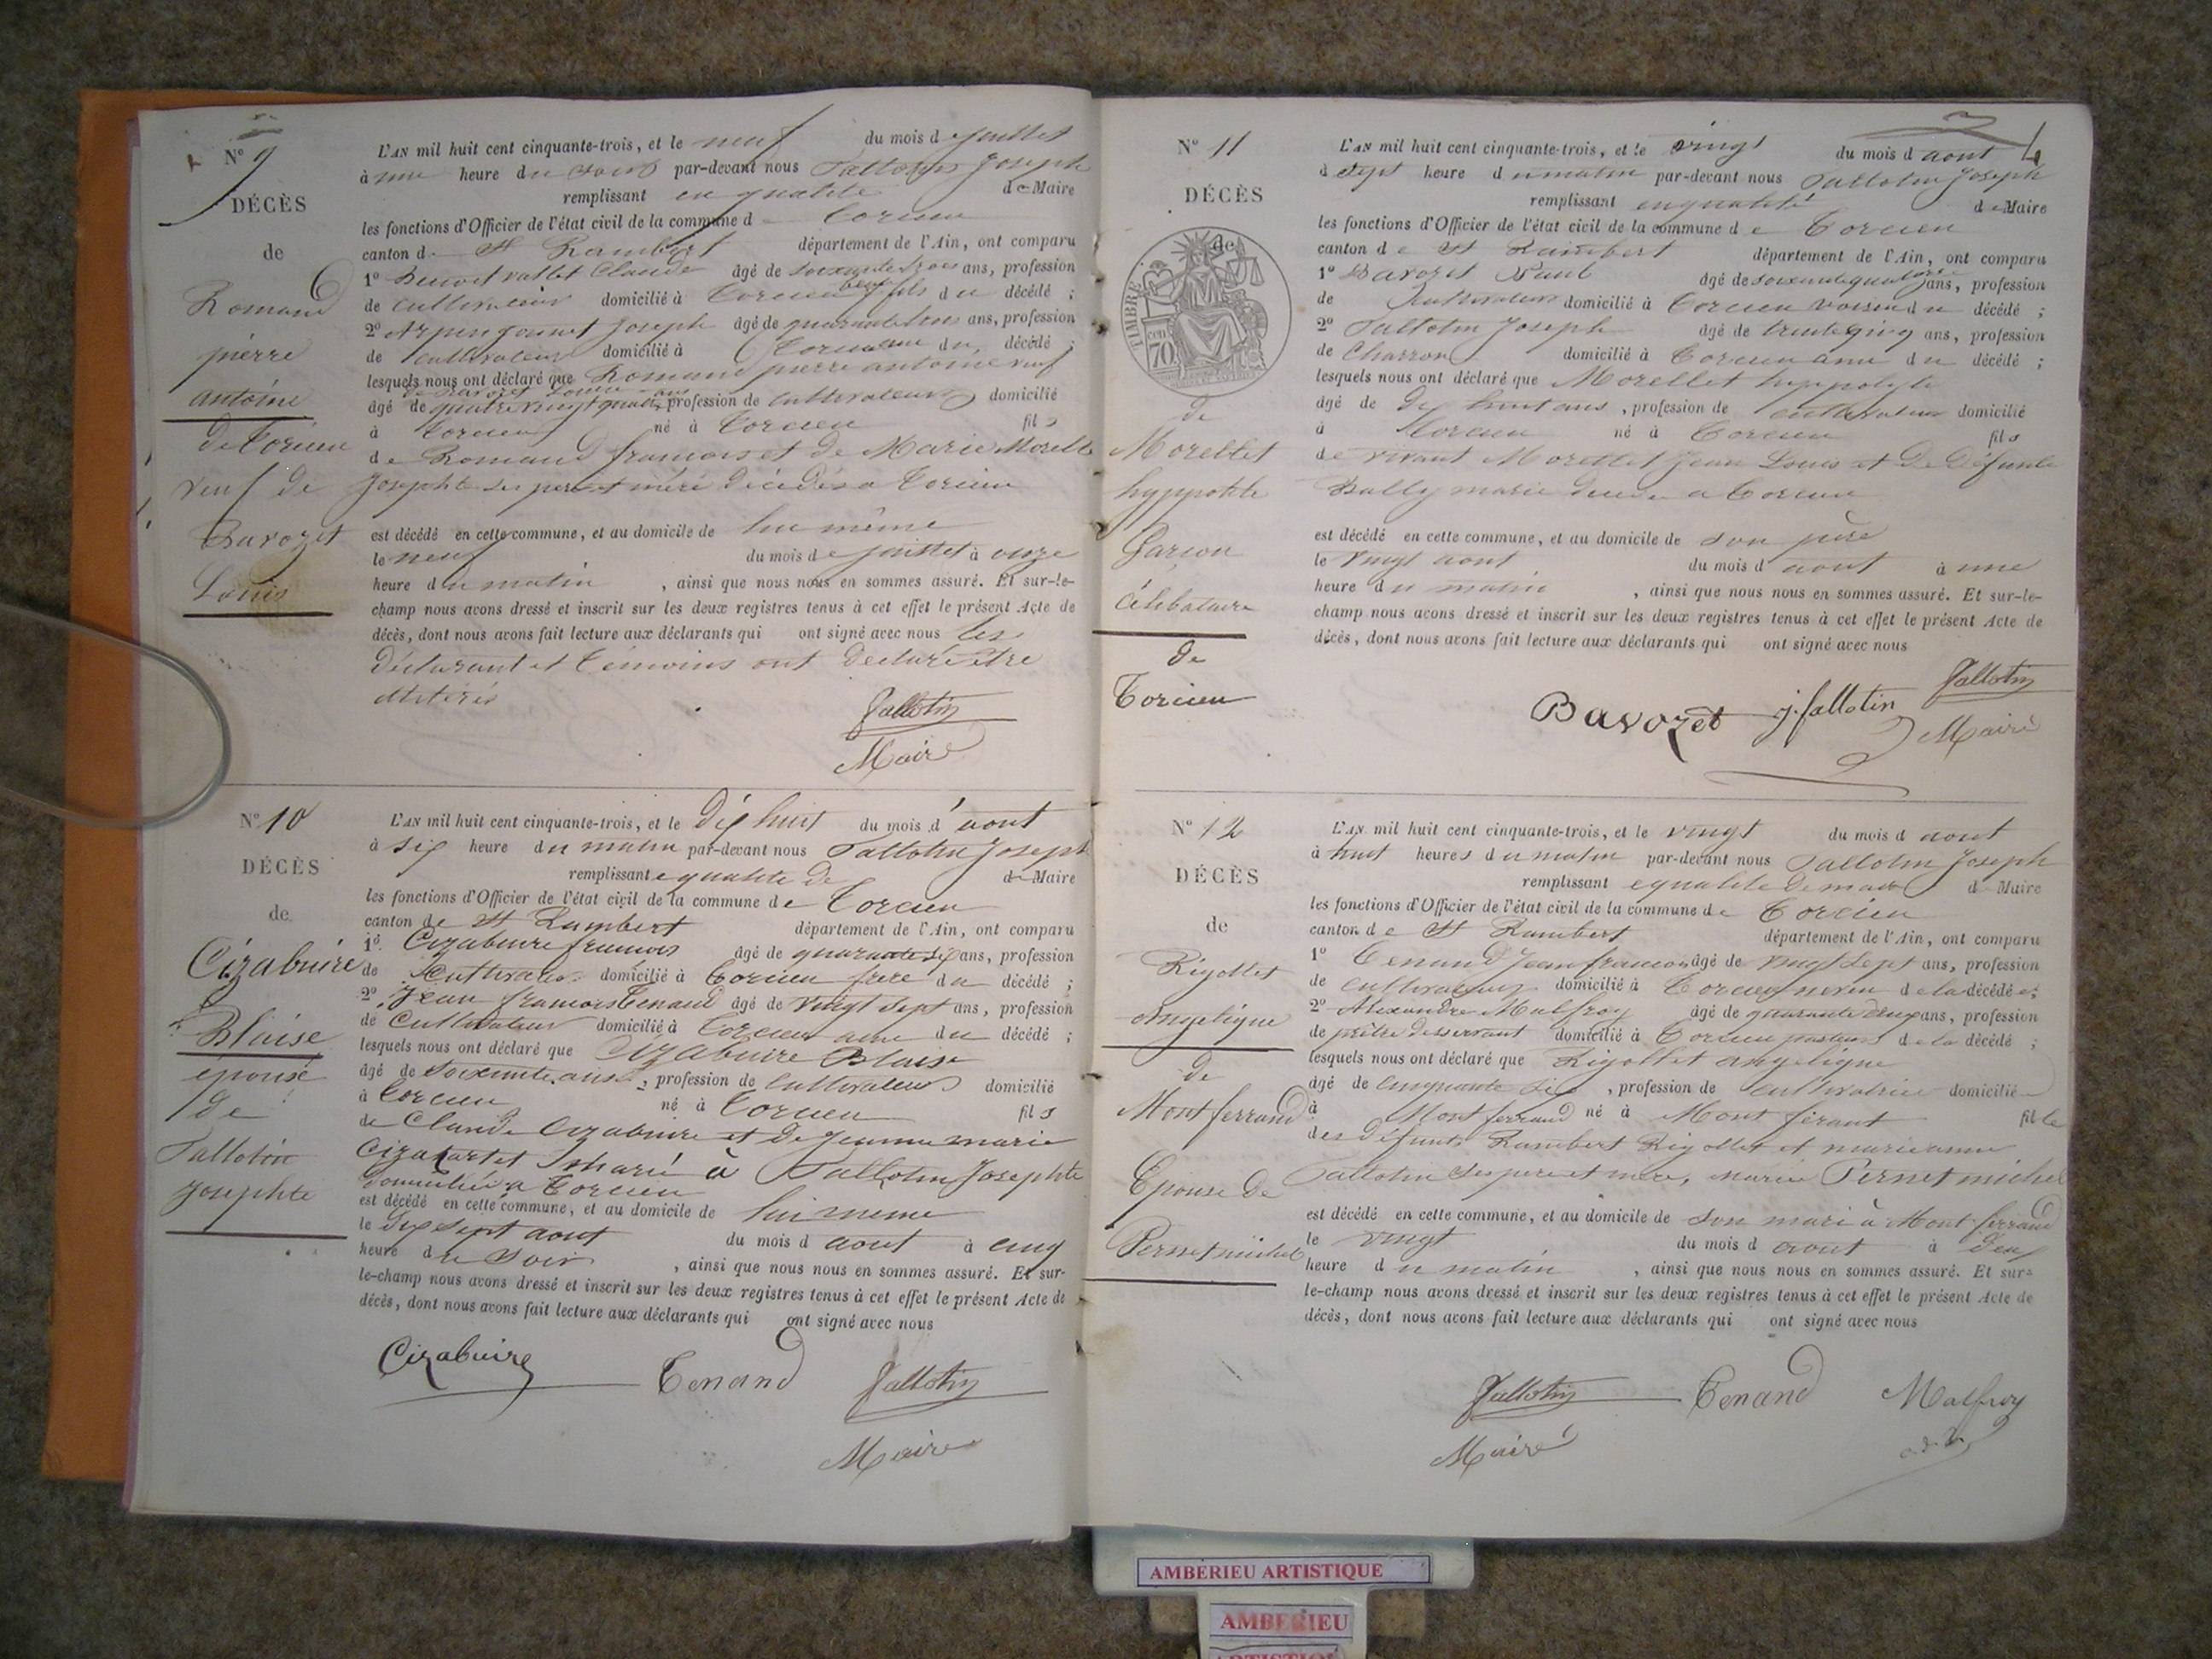 N° 9
DÉCÈS
de
Romand
pierre
antoine
de Torcieu
veuf de
Bavozet
Louis
L'AN mil huit cent cinquante-trois, et le neuf du mois de juillet
à une heure du soir par-devant nous Tallotin Joseph
remplissant en qualité de Maire
les fonctions d'Officier de l'état civil de la commune d Torcieu
canton d. St Rambert département de l'Ain, ont comparu
1° Benoit vallet Claude âgé de soixante trois ans, profession
de cultivateur domicilié à Torcieu beau fils du décédé ;
2° joseph âgé de ans, profession
de cultivateur domicilié à Torcieu du décédé ;
lesquels nous ont déclaré que Romand pierre antoine veuf
de Bavozet Louise
âgé de quatre vingt quatre ans profession de cultivateur domicilié
à Torcieu né à Torcieu fils
de Romand francois et de Marie Morelle
Josephte ses père et mère décédés a Torcieu
est décédé en cette commune, et au domicile de lui même
le neuf du mois de juillet à onze
heure du matin , ainsi que nous nous en sommes assuré. Et sur-le-
champ nous avons dressé et inscrit sur les deux registres tenus à cet effet le présent Acte de
décès, dont nous avons fait lecture aux déclarants qui ont signé avec nous les
déclarant et témoins ont déclaré être
illitérés
Tallotin
Maire
N° 10
DÉCÈS
de
Cizabuire
Blaise
épousé
de
Tallotin
Josephte
L'AN mil huit cent cinquante-trois, et le dix huit du mois d'aout
à six heure du matin par-devant nous Tallotin Joseph
remplissant e qualite de de Maire
les fonctions d'Officier de l'état civil de la commune de Torcieu
canton de St Rambert département de l'Ain, ont comparu
1° Cizabuire francois âgé de quarante six ans, profession
de Cultivateur domicilié à Torcieu frere du décédé ;
2° Jean francois Tenand âgé de vingt sept ans, profession
de Cultivateur domicilié à Torcieu ami du décédé ;
lesquels nous ont déclaré que Cizabuire Blaise
âgé de soixante ans , profession de cultivateur domicilié
à Torcieu né à Torcieu fils
de Claude Cizabuire et de Jeanne marie
marié à Tallotin Josephte
domiciliée a Torcieu
est décédé en cette commune, et au domicile de lui meme
le dix sept aout du mois d aout à cinq
heure du soir , ainsi que nous nous en sommes assuré. Et sur-
le-champ nous avons dressé et inscrit sur les deux registres tenus à cet effet le présent Acte de
décès, dont nous avons fait lecture aux déclarants qui ont signé avec nous
Cizabuire Tenand Tallotin
Maire
4
N° 11
DÉCÈS
de
TIMBRE
70
cen
de
Morellet
hyppolite
Garson
célibataire
de
Torcieu
L'AN mil huit cent cinquante-trois, et le vingt du mois d aout
à sept heure du matin par-devant nous Tallotin Joseph
remplissant en qualité de Maire
les fonctions d'Officier de l'état civil de la commune de Torcieu
canton de St Rambert département de l'Ain, ont comparu
1° Bavozet Paul âgé de soixante quatorze ans, profession
de Cultivateur domicilié à Torcieu voisin du décédé ;
2° Tallotin Joseph âgé de trente cinq ans, profession
de Charron domicilié à Torcieu ami du décédé ;
lesquels nous ont déclaré que Morellet hyppolyte
âgé de dix huit ans , profession de cultivateur domicilié
à Torcieu né à Torcieu fils
de vivant Morellet Jean Louis et de Défunte
Bally marie a Torcieu
est décédé en cette commune, et au domicile de son père
le vingt aout du mois d aout à une
heure du matin , ainsi que nous nous en sommes assuré. Et sur-le-
champ nous avons dressé et inscrit sur les deux registres tenus à cet effet le présent Acte de
décès, dont nous avons fait lecture aux déclarants qui ont signé avec nous
Bavozet j. tallotin Tallotin
Maire
N° 12
DÉCÈS
de
Rigollet
Angelique
de
Mont ferrand
Epouse de
Pernet michel
L'AN mil huit cent cinquante-trois, et le vingt du mois d aout
à huit heures du matin par-devant nous Tallotin Joseph
remplissant e qualite de maire d Maire
les fonctions d'Officier de l'état civil de la commune de Torcieu
canton de St Rambert département de l'Ain, ont comparu
1° Tenand Jean francois âgé de vingt sept ans, profession
de cultivateur domicilié à Torcieu neveu de la décédée ;
2° Alexandre Malfroy âgé de quarante deux ans, profession
de prêtre desservant domicilié à Torcieu pasteur de la décédé ;
lesquels nous ont déclaré que Rigollet angelique
âgé de cinquante six , profession de cultivatrice domicilié
à Mont ferrand né à Mont férant fille
des défunts Rambert Rigollet et marieanne
Tallotin ses pere et mere, mariée Pernet michel
est décédé en cette commune, et au domicile de son mari à Mont ferrand
le vingt du mois d aout à deux
heure du matin , ainsi que nous nous en sommes assuré. Et sur-
le-champ nous avons dressé et inscrit sur les deux registres tenus à cet effet le présent Acte de
décès, dont nous avons fait lecture aux déclarants qui ont signé avec nous
Tallotin Tenand Malfroy
Maire
AMBÉRIEU ARTISTIQUE
AMBERIEU
ARTISTIQUE